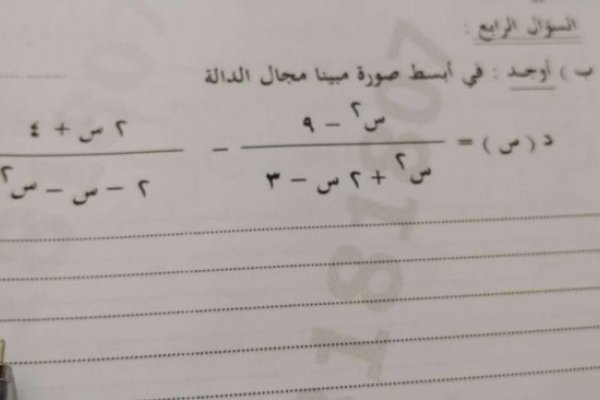 السؤال الرابع :
ب ) أوجد : في أبسط صورة مبينا مجال الدالة
د ( س ) = (س٢ − ٩) / (س٢ + ٢ س − ٣) − (٢ س + ٤) / (٢ − س − س٢)